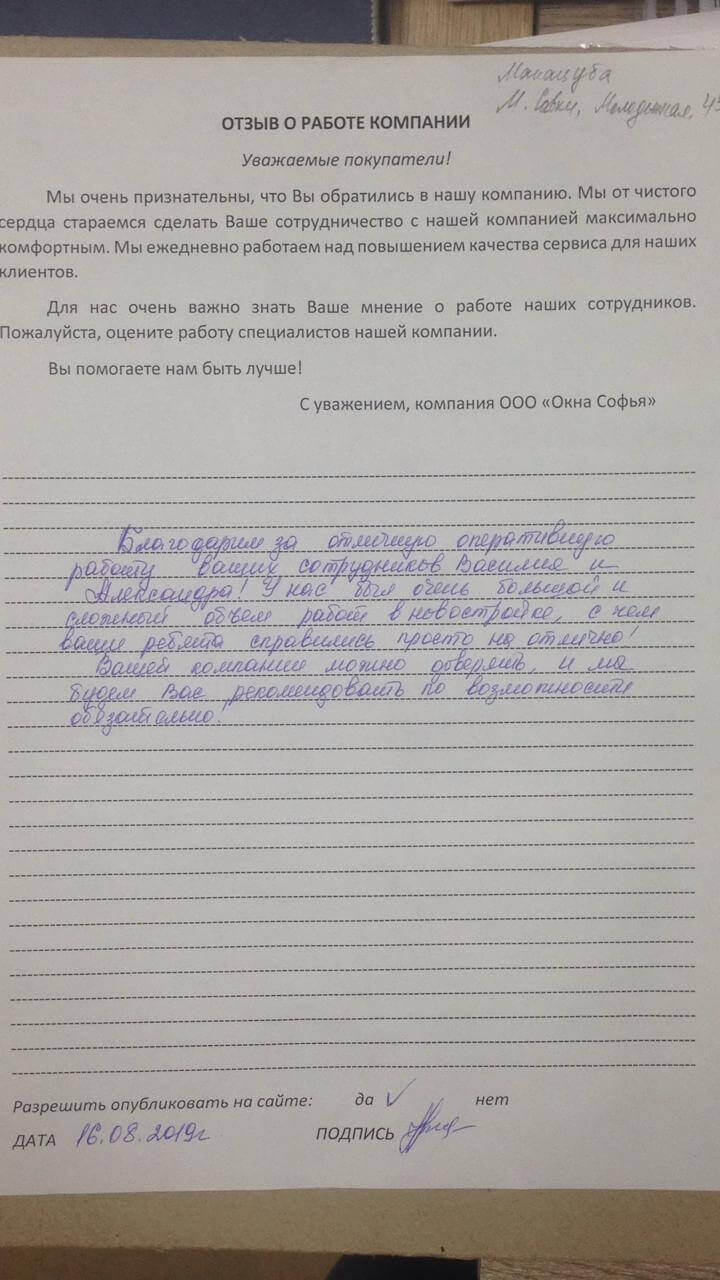 Манацуба
М. Савки, Молодежная, 45
ОТЗЫВ О РАБОТЕ КОМПАНИИ
Уважаемые покупатели!
Мы очень признательны, что Вы обратились в нашу компанию. Мы от чистого
сердца стараемся сделать Ваше сотрудничество с нашей компанией максимально
комфортным. Мы ежедневно работаем над повышением качества сервиса для наших
клиентов.
Для нас очень важно знать Ваше мнение о работе наших сотрудников.
Пожалуйста, оцените работу специалистов нашей компании.
Вы помогаете нам быть лучше!
С уважением, компания ООО «Окна Софья»
Благодарим за отличную оперативную
работу ваших сотрудников Василия и
Александра! У нас был очень большой и
сложный объем работ в новостройке, с чем
ваши ребята справились просто на отлично!
Вашей компании можно доверять, и мы
будем Вас рекомендовать по возможности
обязательно!
Разрешить опубликовать на сайте: да ✓ нет
ДАТА 16.08.2019г ПОДПИСЬ